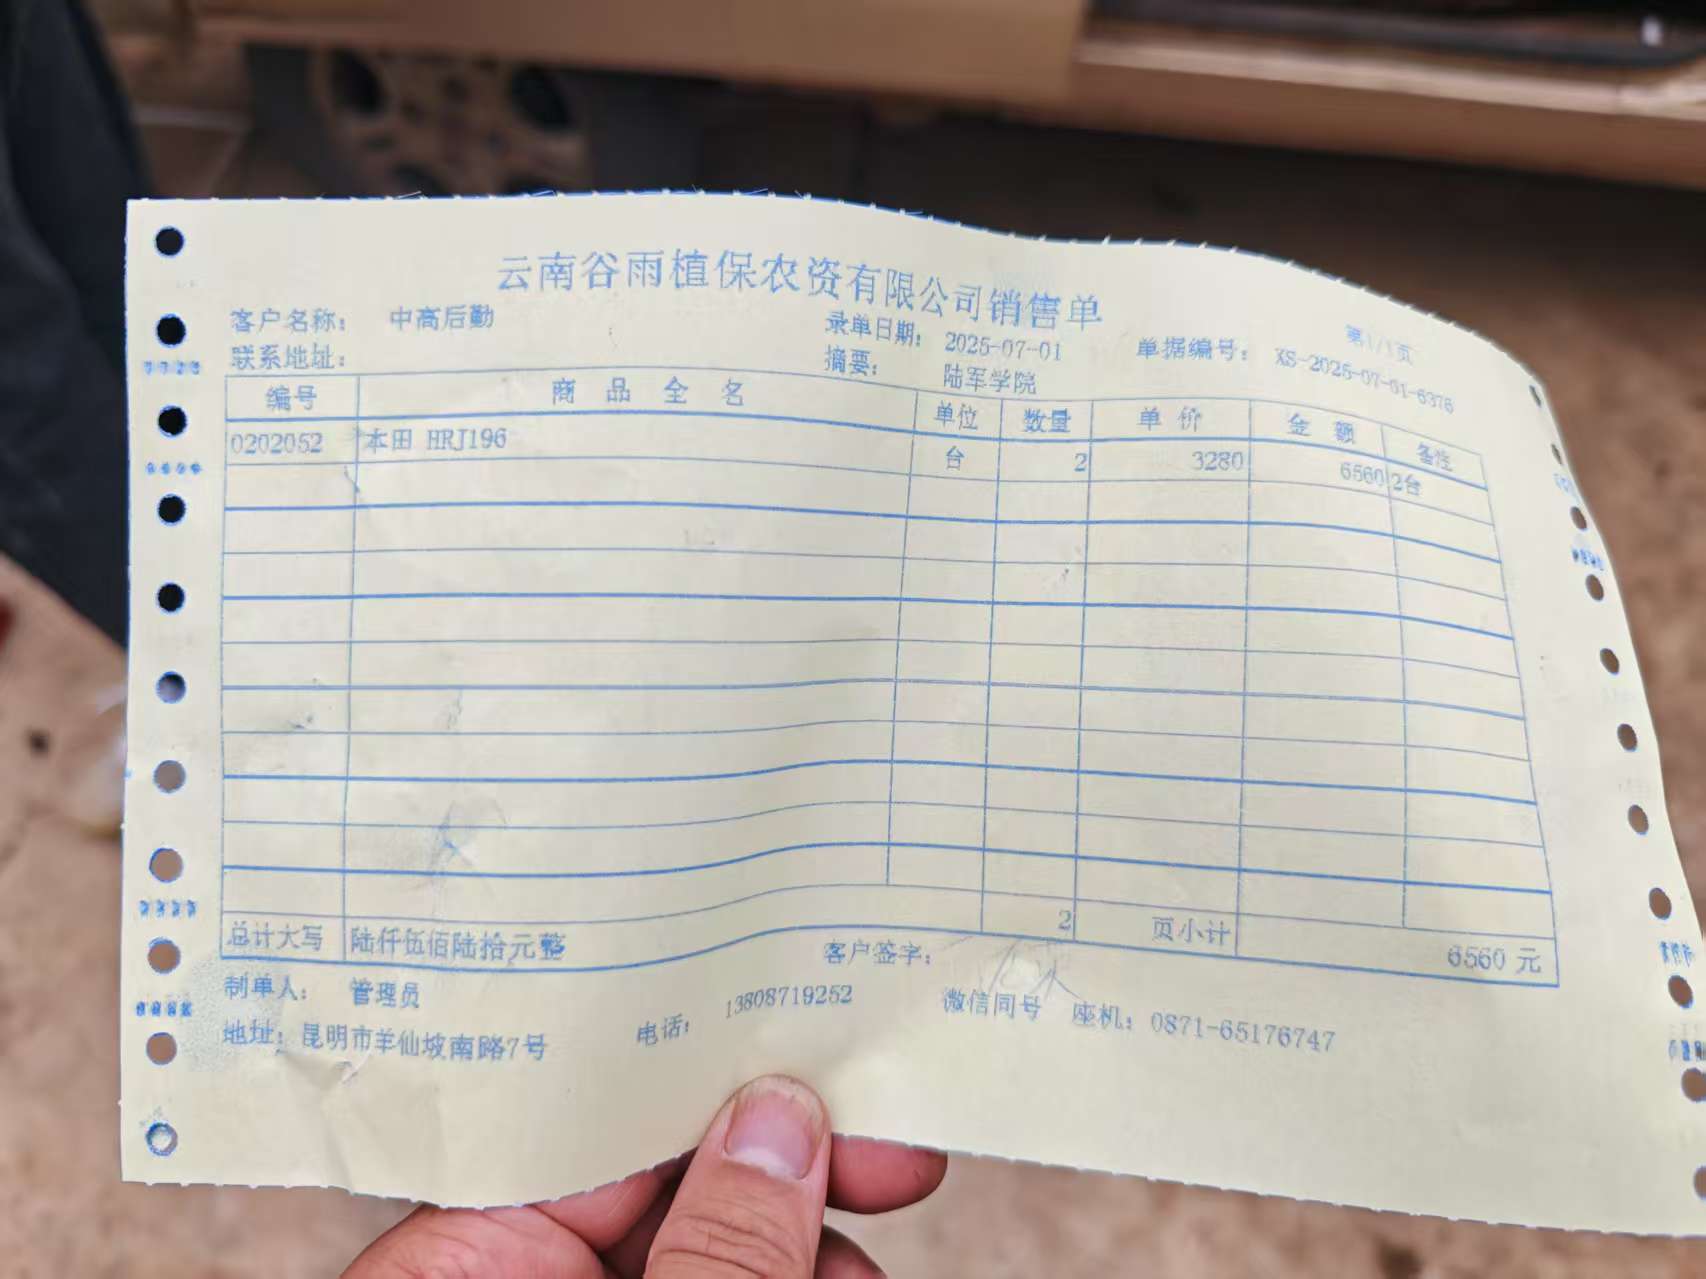 云南谷雨植保农资有限公司销售单
第1/1页
客户名称： 中高后勤 录单日期： 2025-07-01 单据编号： XS-2025-07-01-6376
联系地址： 摘要： 陆军学院
编号 商品全名 单位 数量 单价 金额 备注
0202052 本田 HRJ196 台 2 3280 6560 2台
总计大写 陆仟伍佰陆拾元整 2 页小计 6560 元
制单人： 管理员 客户签字：
地址： 昆明市羊仙坡南路7号 电话： 13808719252 微信同号 座机： 0871-65176747